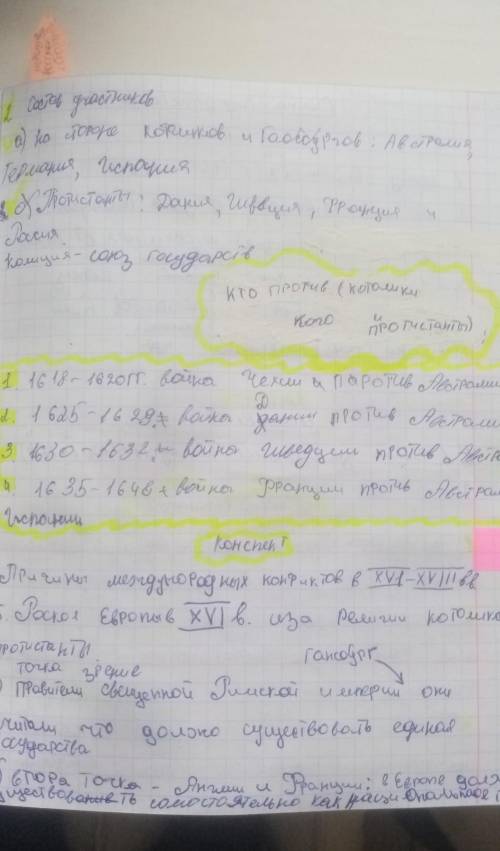 2 Состав участников
а) на стороне котоликов и Гасбургов: Австралия,
Германия, Испания
Протистанты: Дания, Швеция, Франция и
Расия
коалиция - союз государств
КТО ПРОТИВ (КОТОЛИКИ
кого и ПРОТИСТАНТЫ)
1. 1618-1620гг. война Чехии ПАРОТИВ Австралии
2. 1625-1629г война Дании ПРОТИВ Австралии
3. 1630-1632г войны шведции ПРОТИВ Австра
4. 1635-1648г войны Франции против Австрали
Испании
Конспект
Причины международных конфиктов в XVI-XVIII вв
Раскол Европы в XVI в. изза религии котолико
протистанты
точка зрение
гансбург
) правители священной Римской империи они
читали что должно существовать единая
осударства
) втора точка - Англии и Франции: в Европе долж
существовать самостоятельно как